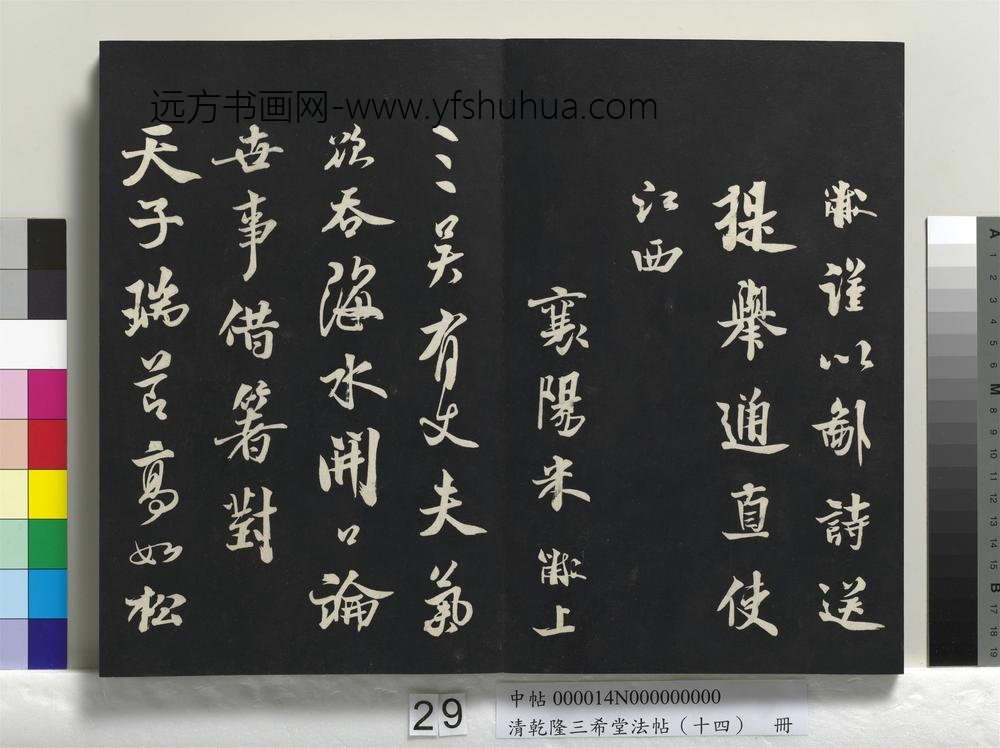 远方书画网-www.yfshuhua.com
黻謹以鄙詩送
提舉通直使
江西
襄陽米黻上
三吳有丈夫氣
欲吞海水開口論
世事借箸對
天子瑞節高如松
29
中帖 000014N000000000
清乾隆三希堂法帖（十四） 冊
A 1 2 3 4 5 6 M 8 9 10 11 12 13 14 15 B 17 18 19